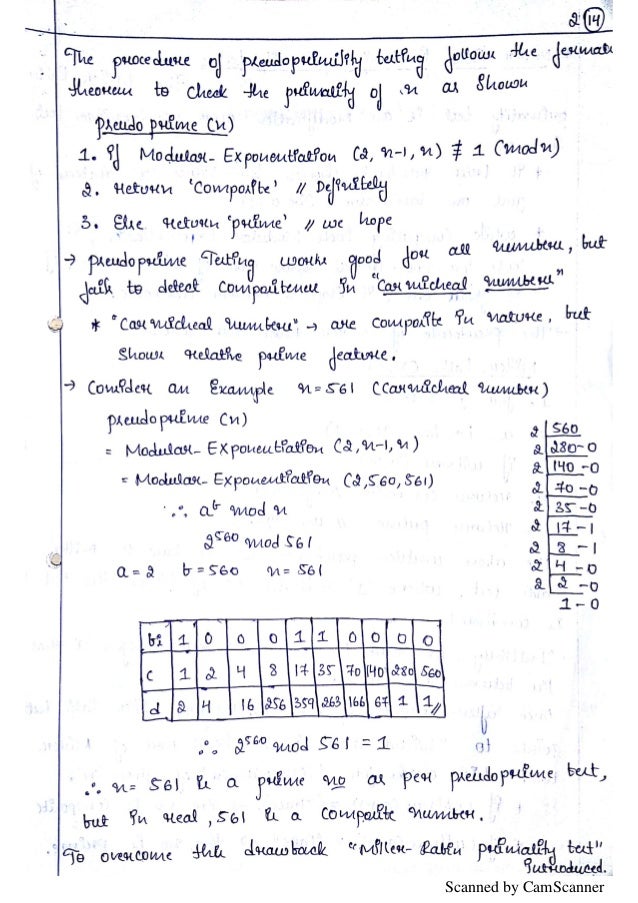 2 14
The procedure of pseudoprimility testing follows the fermats
theorem to check the primality of n as shown
Pseudo prime (n)
1. If Modular-Exponentiation (2, n-1, n) ≢ 1 (mod n)
2. Return 'Composite' // Definitely
3. Else return 'prime' // we hope
→ pseudoprime Testing works good for all numbers, but
fails to detect compositeness in "Carmicheal numbers"
* "Carmicheal numbers" → are composite in nature, but
shows relative prime feature.
→ Consider an Example n=561 (Carmicheal number)
pseudoprime (n)
= Modular-Exponentiation (2, n-1, n)
= Modular-Exponentiation (2, 560, 561)
∴ a^b mod n
2^560 mod 561
a=2 b=560 n=561
2 560
2 280-0
2 140-0
2 70-0
2 35-0
2 17-1
2 8-1
2 4-0
2 2-0
1-0
bi 1 0 0 0 1 1 0 0 0 0
c 1 2 4 8 17 35 70 140 280 560
d 2 4 16 256 359 263 166 67 1 1//
∴ 2^560 mod 561 = 1
∴ n= 561 is a prime no as per pseudoprime test,
but in real, 561 is a composite number.
To overcome this drawback "Miller-Rabin primiality test"
introduced.
Scanned by CamScanner